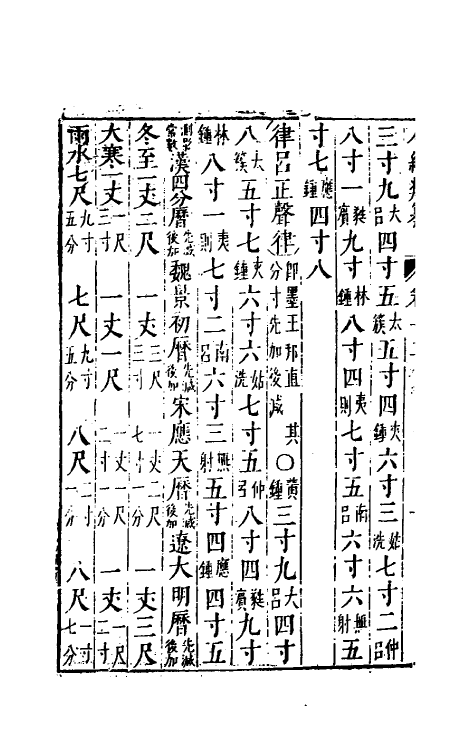 三寸九大呂四寸五太簇五寸四夾鍾六寸三姑洗七寸二仲呂
八寸一蕤賓九寸林鍾八寸四夷則七寸五南呂六寸六無射五
寸七應鍾四寸八
律呂正聲律即墨王邦直分寸先加後減其○黃鍾三寸九大呂四寸
八太簇五寸七夾鍾六寸六姑洗七寸五仲呂八寸四蕤賓九寸
林鍾八寸一夷則七寸二南呂六寸三無射五寸四應鍾四寸五
測影常數漢四分曆先減後加魏景初曆先減後加宋應天曆先減後加遼大明曆先減後加
冬至一丈二尺 一丈三尺三寸 一丈二尺七寸一分 一丈三尺
大寒一丈一尺三寸 一丈一尺 一丈一尺二寸一分 一丈一尺二寸
雨水七尺九寸五分 七尺九寸五分 八尺二寸一分 八尺一寸七分